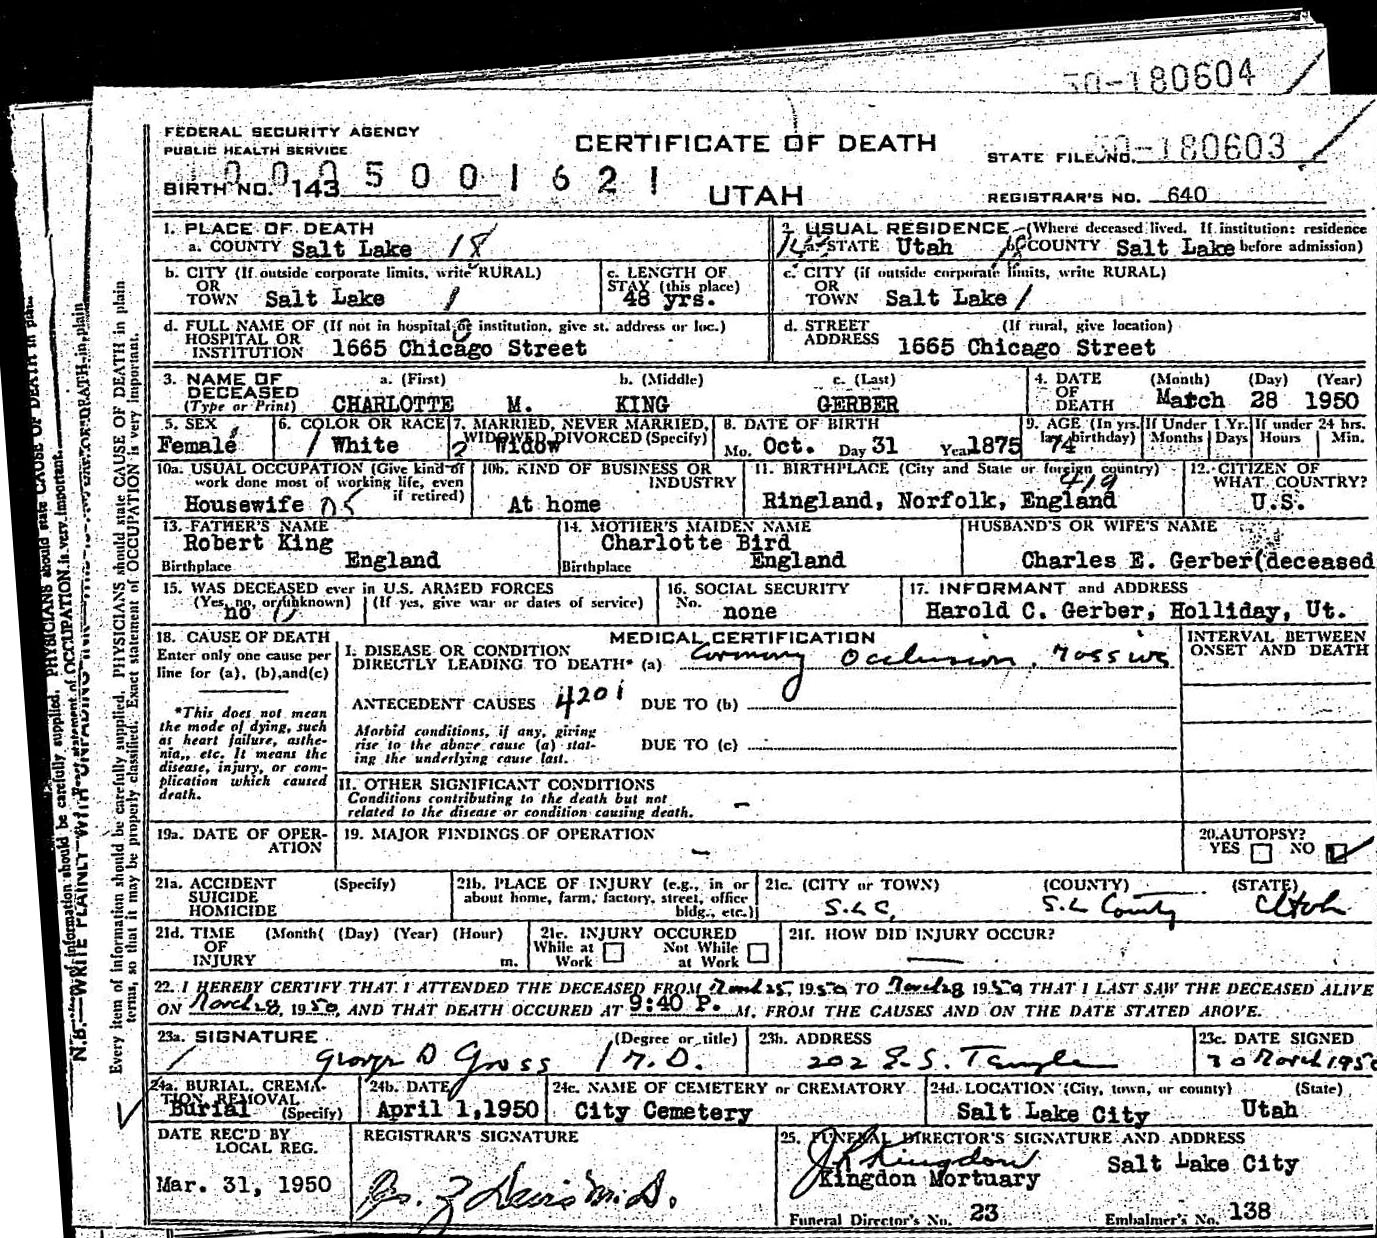 50-180604
FEDERAL SECURITY AGENCY
PUBLIC HEALTH SERVICE
CERTIFICATE OF DEATH
STATE FILE NO. 50-180603
1000 5001621
BIRTH NO. 143
UTAH
REGISTRAR'S NO. 640
1. PLACE OF DEATH
a. COUNTY Salt Lake 18
2. USUAL RESIDENCE (Where deceased lived. If institution: residence
a. STATE Utah b. COUNTY Salt Lake before admission)
b. CITY (If outside corporate limits, write RURAL)
OR
TOWN Salt Lake 1
c. LENGTH OF
STAY (this place)
48 yrs.
c. CITY (if outside corporate limits, write RURAL)
OR
TOWN Salt Lake 1
d. FULL NAME OF (If not in hospital or institution, give st. address or loc.)
HOSPITAL OR
INSTITUTION 1665 Chicago Street
d. STREET (If rural, give location)
ADDRESS 1665 Chicago Street
3. NAME OF DECEASED
(Type or Print)
a. (First) b. (Middle) c. (Last)
CHARLOTTE M. KING GERBER
4. DATE OF DEATH (Month) (Day) (Year)
March 28 1950
5. SEX
Female
6. COLOR OR RACE
1 White
7. MARRIED, NEVER MARRIED,
WIDOWED, DIVORCED (Specify)
2 Widow
8. DATE OF BIRTH
Mo. Oct. Day 31 Year 1875
9. AGE (In yrs. last birthday)
74
If Under 1 Yr. Months Days
If under 24 hrs. Hours Min.
10a. USUAL OCCUPATION (Give kind of
work done most of working life, even
if retired)
Housewife
10b. KIND OF BUSINESS OR
INDUSTRY
At home
11. BIRTHPLACE (City and State or foreign country)
419
Ringland, Norfolk, England
12. CITIZEN OF
WHAT COUNTRY?
U.S.
13. FATHER'S NAME
Robert King
Birthplace England
14. MOTHER'S MAIDEN NAME
Charlotte Bird
Birthplace England
HUSBAND'S OR WIFE'S NAME
Charles E. Gerber(deceased
15. WAS DECEASED ever in U.S. ARMED FORCES
(Yes, no, or unknown) (If yes, give war or dates of service)
no
16. SOCIAL SECURITY
No. none
17. INFORMANT and ADDRESS
Harold C. Gerber, Holliday, Ut.
18. CAUSE OF DEATH
Enter only one cause per
line for (a), (b), and (c)
*This does not mean
the mode of dying, such
as heart failure, asthe-
nia, etc. It means the
disease, injury, or com-
plication which caused
death.
MEDICAL CERTIFICATION
I. DISEASE OR CONDITION
DIRECTLY LEADING TO DEATH* (a) Coronary Occlusion, massive
ANTECEDENT CAUSES 4201 DUE TO (b)
Morbid conditions, if any, giving
rise to the above cause (a) stat-
ing the underlying cause last.
DUE TO (c)
II. OTHER SIGNIFICANT CONDITIONS
Conditions contributing to the death but not
related to the disease or condition causing death. -
INTERVAL BETWEEN
ONSET AND DEATH
19a. DATE OF OPER-
ATION
19. MAJOR FINDINGS OF OPERATION
-
20. AUTOPSY?
YES NO
21a. ACCIDENT (Specify)
SUICIDE
HOMICIDE
21b. PLACE OF INJURY (e.g., in or
about home, farm, factory, street, office
bldg., etc.)
21c. (CITY or TOWN) (COUNTY) (STATE)
S.L.C. S.L County Utah
21d. TIME (Month) (Day) (Year) (Hour)
OF
INJURY m.
21e. INJURY OCCURED
While at Work Not While at Work
21f. HOW DID INJURY OCCUR?
22. I HEREBY CERTIFY THAT I ATTENDED THE DECEASED FROM March 25, 1950 TO March 28 1950 THAT I LAST SAW THE DECEASED ALIVE
ON March 28, 1950, AND THAT DEATH OCCURED AT 9:40 P. M, FROM THE CAUSES AND ON THE DATE STATED ABOVE.
23a. SIGNATURE (Degree or title)
George D Gross M.D.
23b. ADDRESS
202 E. S. Temple
23c. DATE SIGNED
30 March 1950
24a. BURIAL, CREMA-
TION, REMOVAL
Burial (Specify)
24b. DATE
April 1, 1950
24c. NAME OF CEMETERY or CREMATORY
City Cemetery
24d. LOCATION (City, town, or county) (State)
Salt Lake City Utah
DATE REC'D BY
LOCAL REG.
Mar. 31, 1950
REGISTRAR'S SIGNATURE
25. FUNERAL DIRECTOR'S SIGNATURE AND ADDRESS
Kingdon
Salt Lake City
Kingdon Mortuary
Funeral Director's No. 23 Embalmer's No. 138
N.B.—WRITE PLAINLY WITH UNFADING INK
Every item of information should be carefully supplied. PHYSICIANS should state CAUSE OF DEATH in plain
terms, so that it may be properly classified. Exact statement of OCCUPATION is very important.